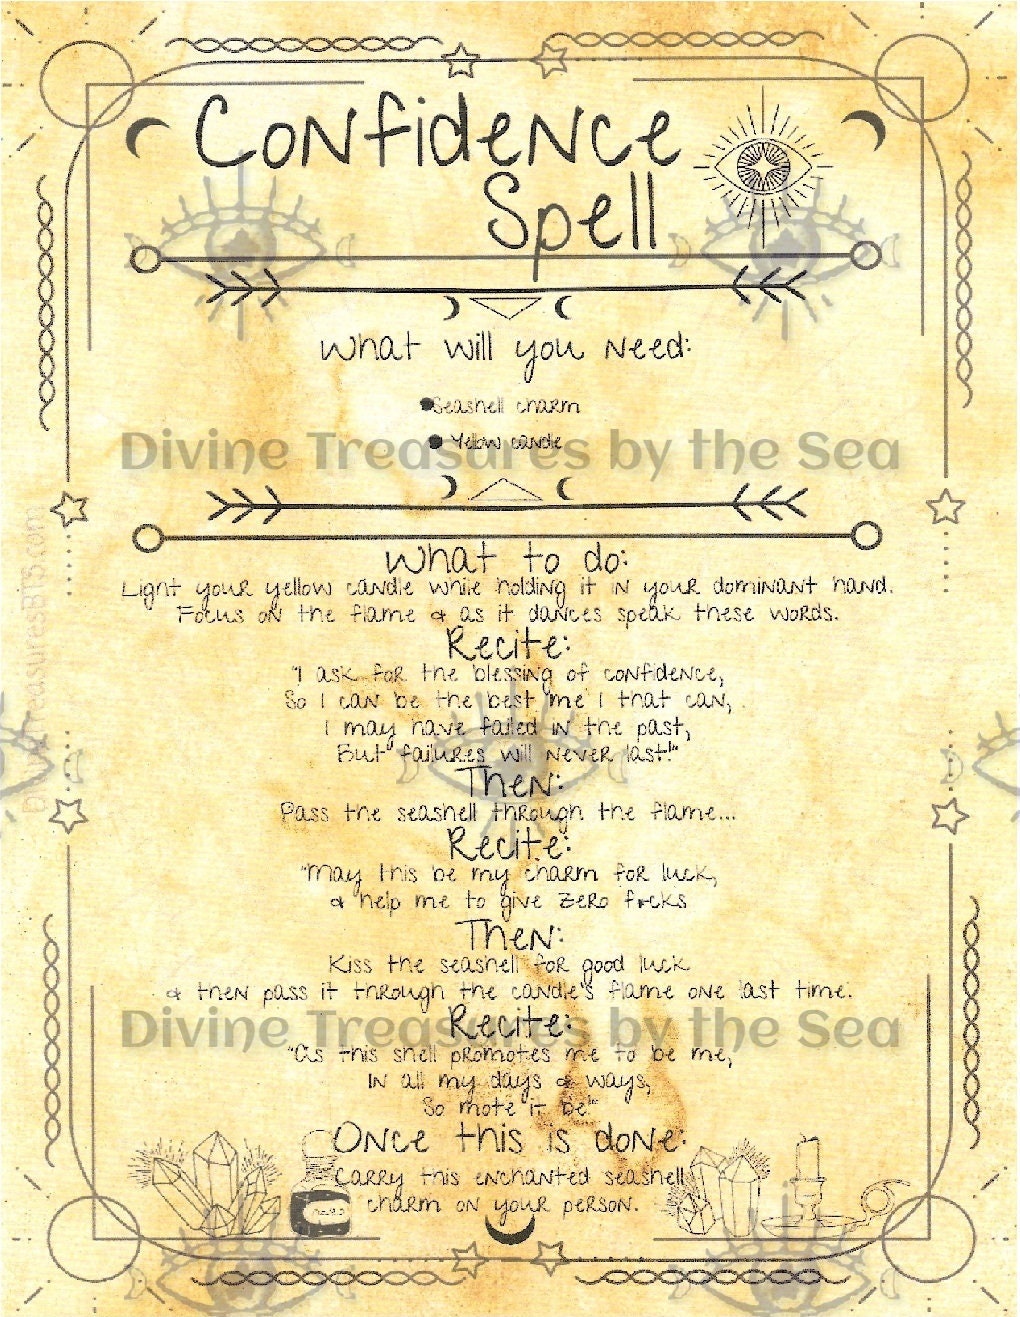 Confidence
Spell
What will you need:
• Seashell charm
• Yellow candle
Divine Treasures by the Sea
What to do:
Light your yellow candle while holding it in your dominant hand.
Focus on the flame & as it dances speak these words.
Recite:
"I ask for the blessing of confidence,
So I can be the best me I that can,
I may have failed in the past,
But failures will never last!"
Then:
Pass the seashell through the flame...
Recite:
"May this be my charm for luck,
& help me to give zero f*cks
Then:
Kiss the seashell for good luck
& then pass it through the candle's flame one last time.
Divine Treasures by the Sea
Recite:
"As this shell promotes me to be me,
In all my days & ways,
So mote it be!"
Once this is done:
Carry this enchanted seashell
charm on your person.
DivineTreasuresBTS.com